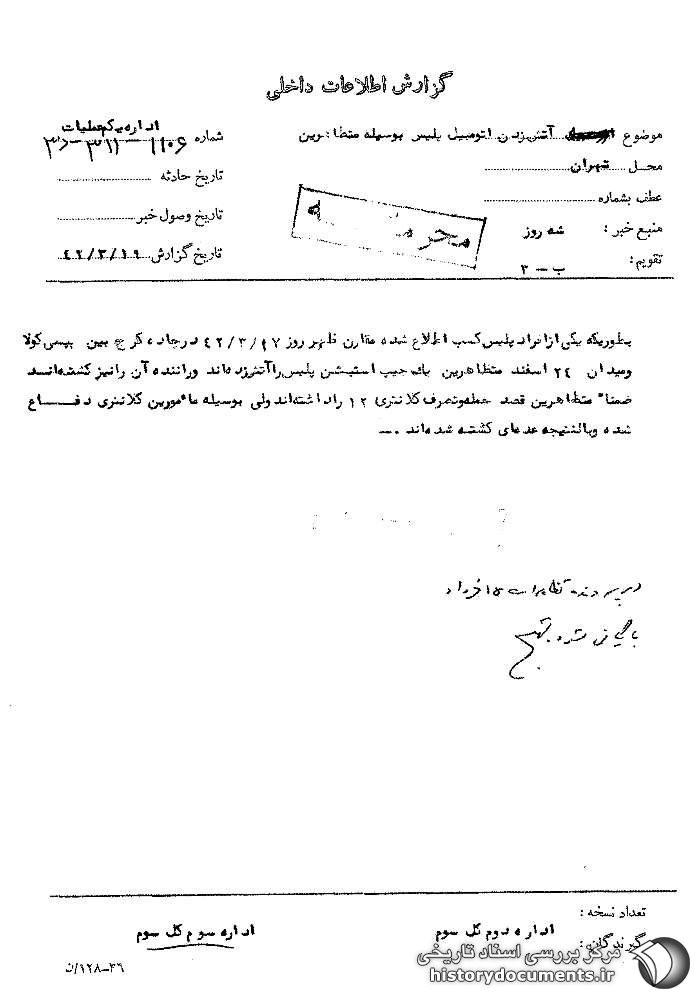 گزارش اطلاعات داخلی
موضوع آتش زدن اتومبیل پلیس بوسیله متظاهرین
اداره یکم عملیات
شماره ۱۱۰۶-۳۱۱-۳
محل تهران
تاریخ حادثه
عطف بشماره
تاریخ وصول خبر
منبع خبر : شه روز
تاریخ گزارش ۴۲/۳/۱۹
تقویم : ب - ۳
محرمانه
بطوریکه یکی از افراد پلیس کسب اطلاع شده مقارن ظهر روز ۴۲/۳/۱۷ در جاده کرج بین پپسی کولا
و میدان ۲۴ اسفند متظاهرین یک جیپ استیشن پلیس را آتش زده اند و راننده آن را نیز کشته اند
ضمنا" متظاهرین قصد حمله و تصرف کلانتری ۱۲ را داشته اند ولی بوسیله مامورین کلانتری دفاع
شده و بالنتیجه عده ای کشته شده اند .-
در پرونده تظاهرات ۱۵ خرداد
بایگانی شود
تعداد نسخه :
گیرندگان : اداره دوم کل سوم
اداره سوم کل سوم
۱۲۸-۳۶/ن
مرکز بررسی اسناد تاریخی
historydocuments.ir